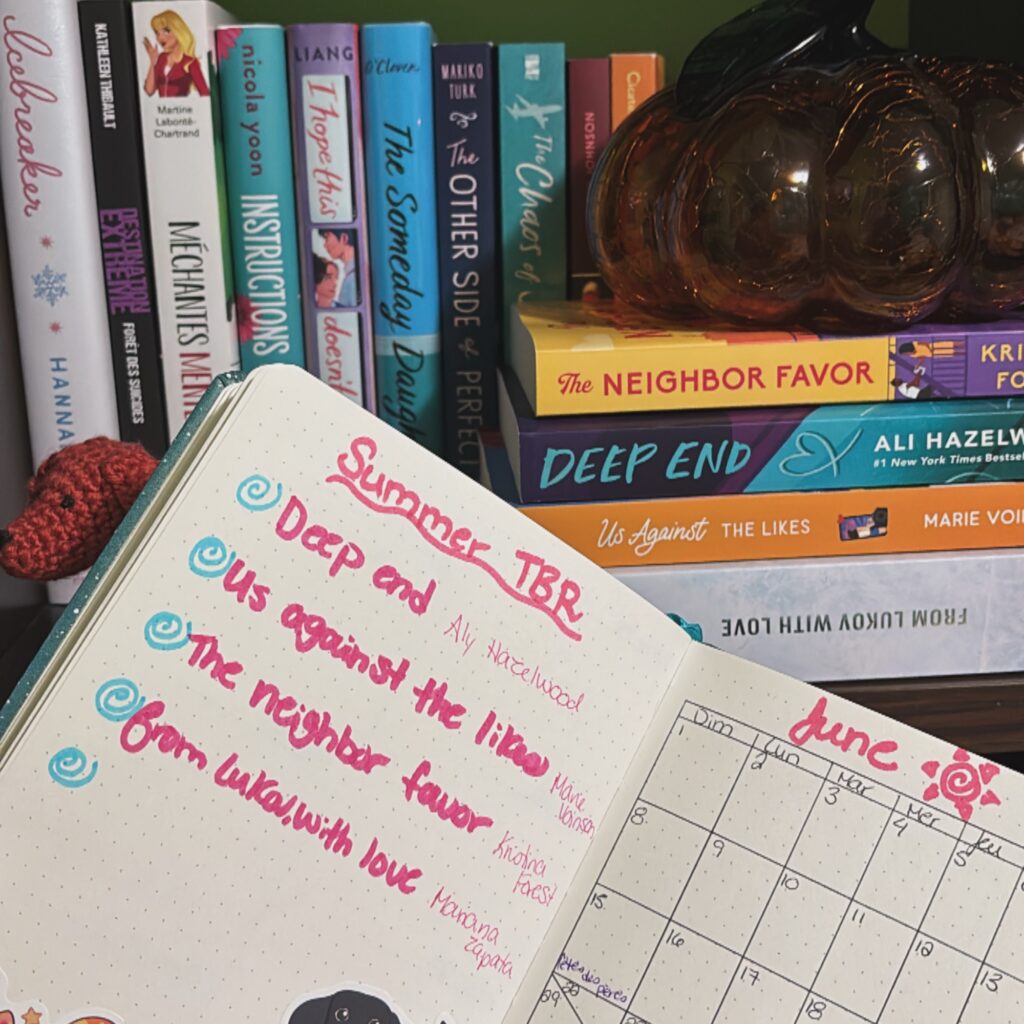 Icebreaker
HANNA
KATHLEEN THIBAULT
DESTINATION EXTRÊME
FORÊT DES SUICIDES
Martine
Labonté-
Chartrand
MÉCHANTES
nicola yoon
INSTRUCTIONS
LIANG
I hope this
doesn't
The Someday Daugh
MARIKO
TURK
The OTHER SIDE of PERFECT
The Chaos of
The NEIGHBOR FAVOR
KRI
FO
DEEP END
ALI HAZELW
#1 New York Times Bestsel
Us Against THE LIKES
MARIE VOI
FROM LUKOV WITH LOVE
Summer TBR
Deep end
Aly Hazelwood
Us against the likes
Marie
Voinson
The neighbor favor
Kristina
Forest
from Lukov, with love
Mariana
Zapata
June
Dim Lun Mar Mer Jeu
1 2 3 4 5
8 9 10 11 12 13
15 16 17 18
Fête des pères
29